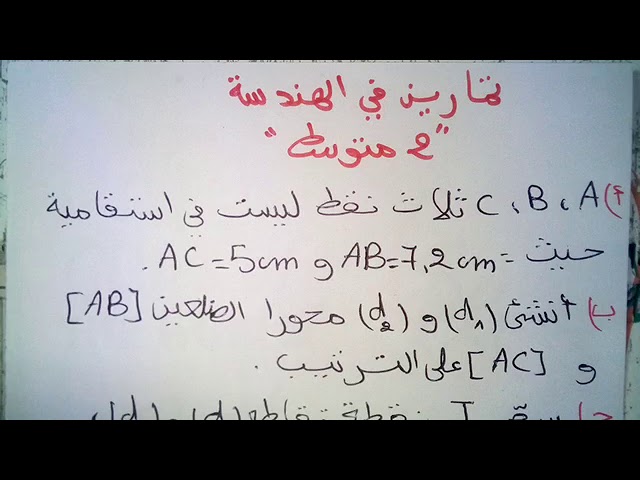 تمارين في الهندسة
"2 متوسط"
أ) A، B، C ثلاث نقط ليست في استقامية
حيث = AB=7,2cm و AC=5cm.
ب) أنشئ (d₁) و (d₂) محورا الضلعين [AB]
و [AC] على الترتيب.
ج) سمّ I نقطة تقاطع (d₁) و (d₂)